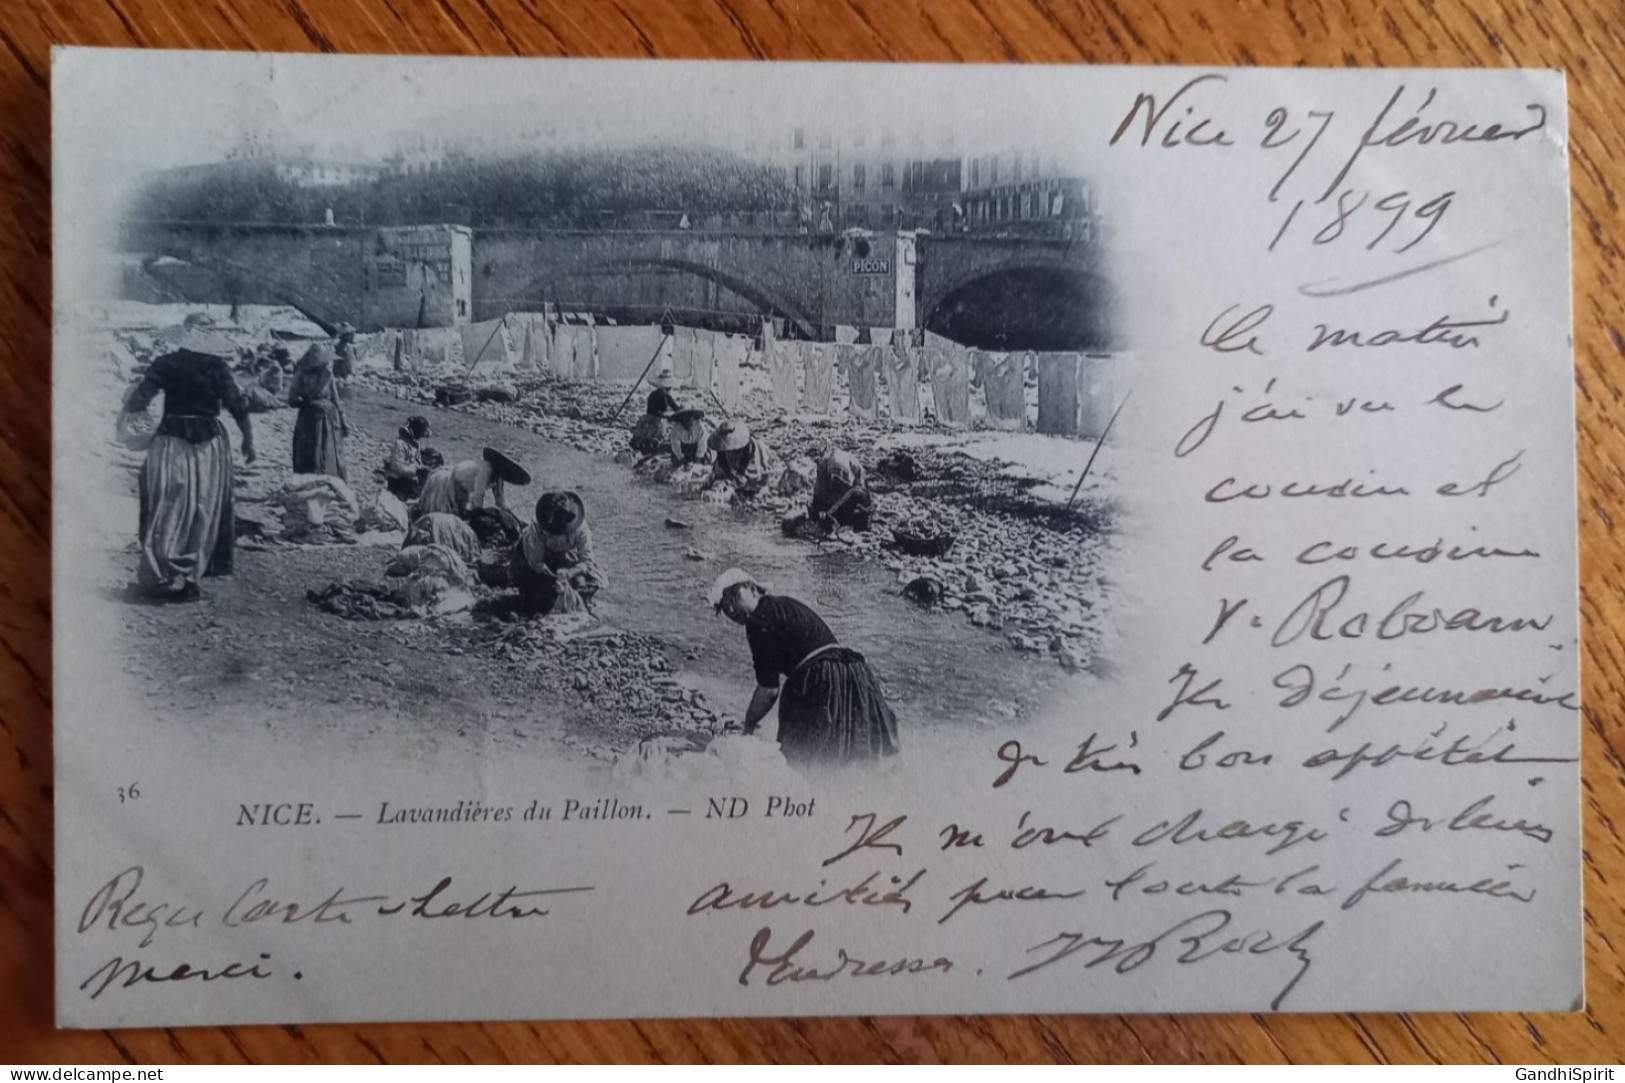 Nice 27 février
1899
Ce matin
j'ai vu le
cousin et
la cousine
Roboam.
Ils déjeunaient
de très bon appétit
Ils m'ont chargé de leurs
amitiés pour toute la famille
PICON
36
NICE. — Lavandières du Paillon. — ND Phot
Reçu Carte et lettre
merci.
Roch
GandhiSpirit